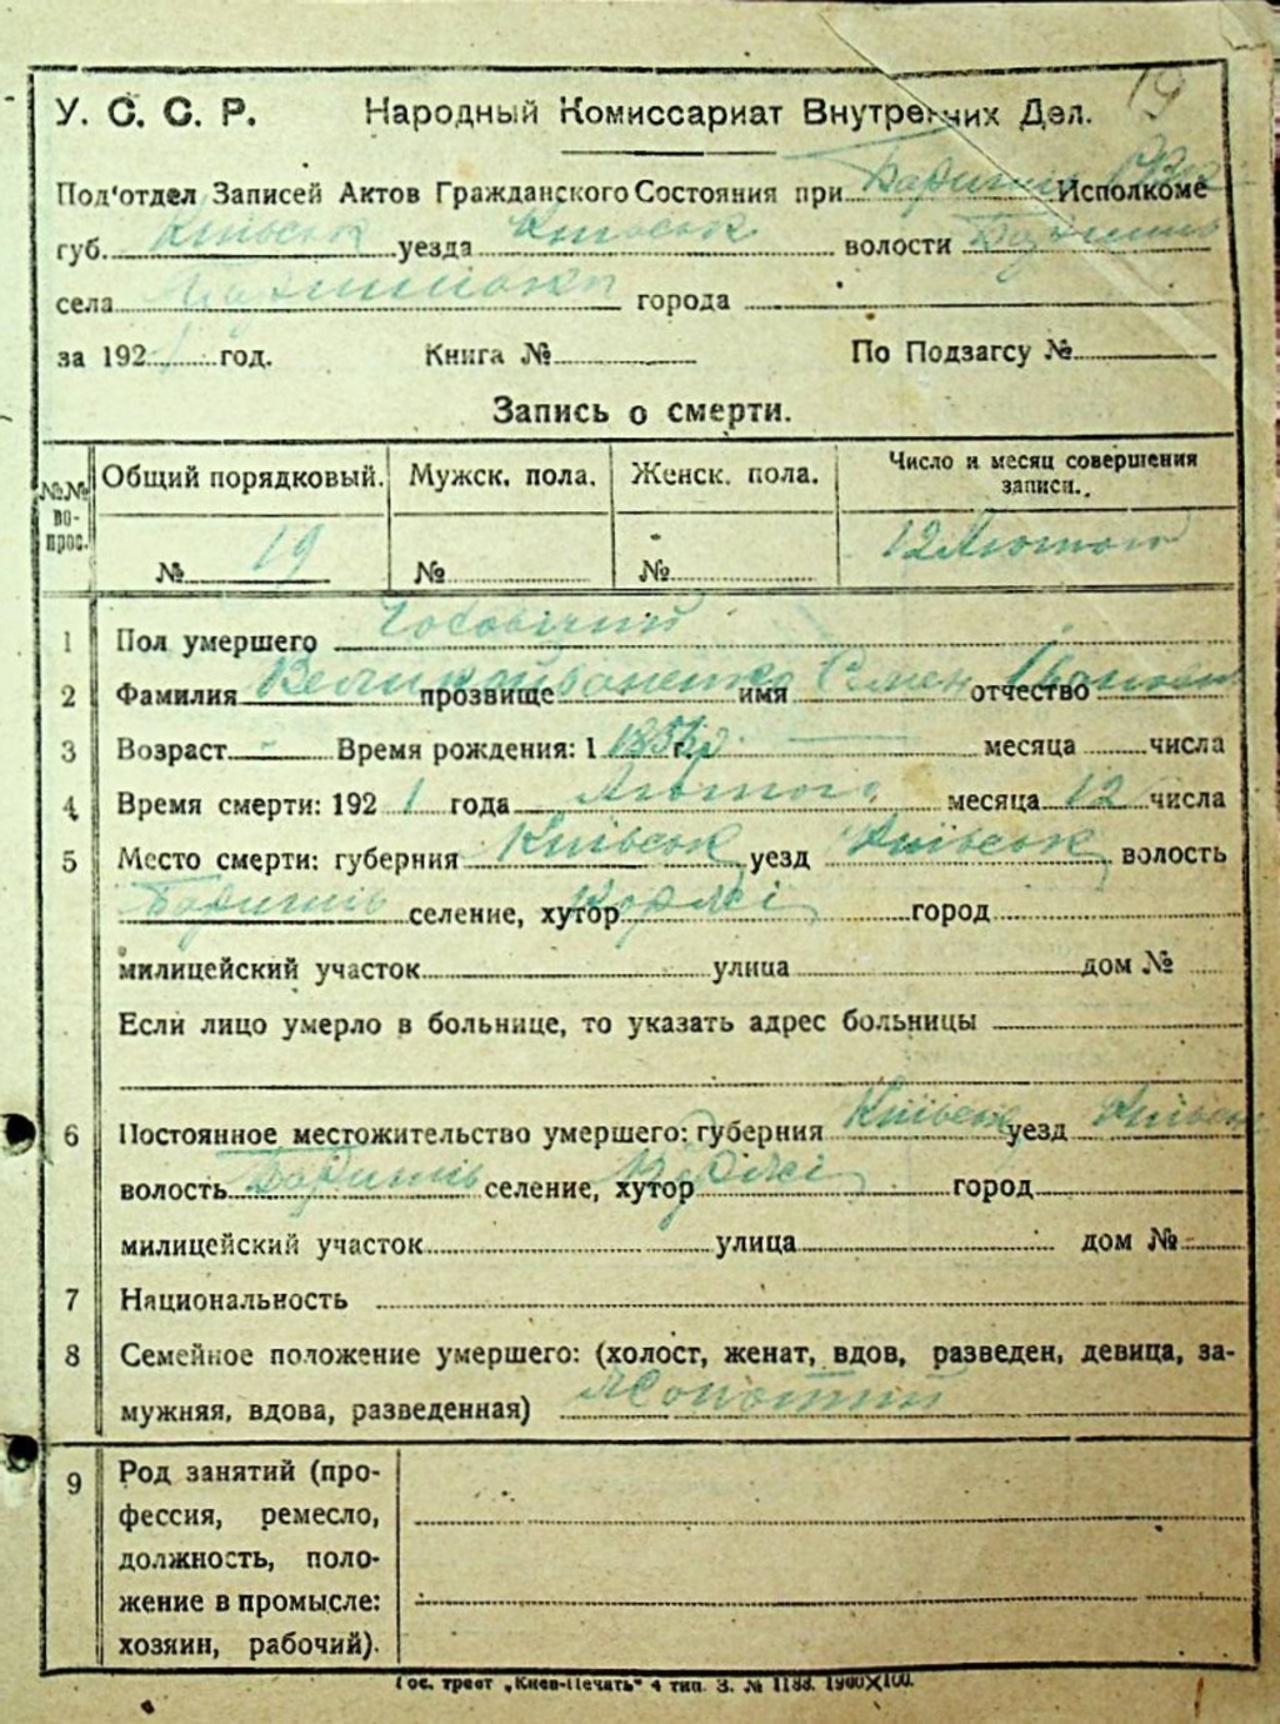 19
У. С. С. Р. Народный Комиссариат Внутренних Дел.
Под'отдел Записей Актов Гражданского Состояния при Исполкоме
губ. Київськ уезда Київськ волости Баришів
села города
за 192 год. Книга № По Подзагсу №
Запись о смерти.
№№ вопрос. Общий порядковый. Мужск. пола. Женск. пола. Число и месяц совершения записи.
№ 19 № № 12 Лютого
1 Пол умершего Чоловічий
2 Фамилия прозвище имя Семен отчество
3 Возраст - Время рождения: 1 месяца числа
4 Время смерти: 192 1 года Лютого месяца 12 числа
5 Место смерти: губерния Київськ уезд Київськ волость
Баришів селение, хутор Коржі город
милицейский участок улица дом №
Если лицо умерло в больнице, то указать адрес больницы
6 Постоянное местожительство умершего: губерния Київськ уезд Київськ
волость Баришів селение, хутор Коржі город
милицейский участок улица дом №
7 Национальность
8 Семейное положение умершего: (холост, женат, вдов, разведен, девица, за-
мужняя, вдова, разведенная)
9 Род занятий (про-
фессия, ремесло,
должность, поло-
жение в промысле:
хозяин, рабочий).
Гос. трест „Киев-Печать" 4 тип. З. № 1183. 1900X100.